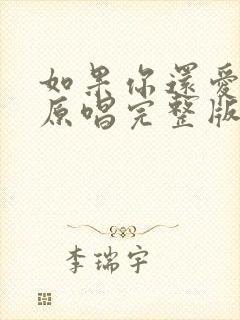 如果你還愛
原唱完整版
李瑞宇